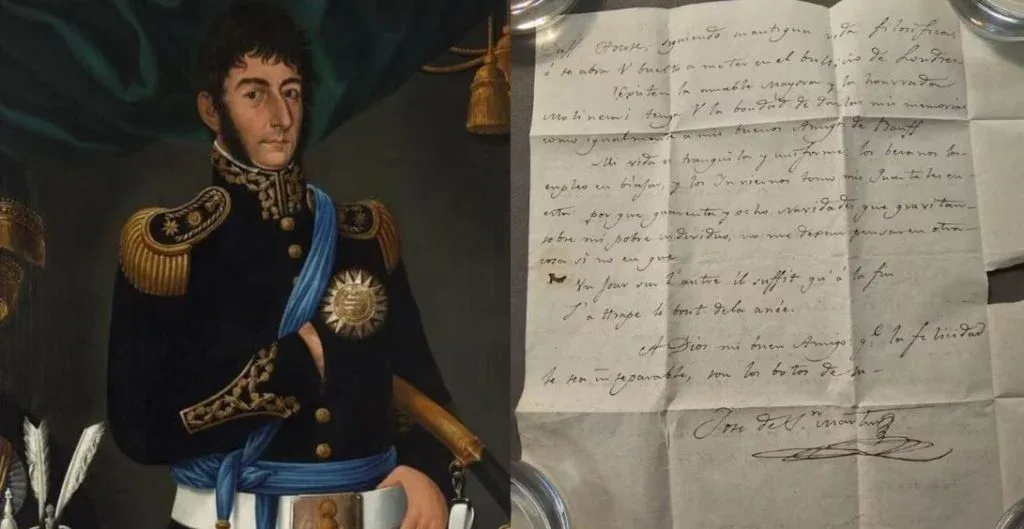 Duff House, siguiendo mantigua vida filosifica,
ó se abra V buelto a meter en el bullicio de Londres.
Existen la amable Mayara y la honrrada
Molinera; tengo V la bondad de darlas mis memorias
como igualmente a mis buenos Amigos de Banff
Mi vida es tranquila y uniforme: los beranos los
empleo en biajar, y los Inviernos tomo mis Quarteles en
esta: por que quarenta y ocho Navidades que gravitan
sobre mi pobre individuo, no me dexan pensar en otra
cosa si no en que
Un Jour sur l'autre il suffit qu'à la fin
L'attrape le bout de la anée.
A Dios mi buen Amigo: qe. la felicidad
le sea inseparable, son los botos de su
José de Sn. Martin